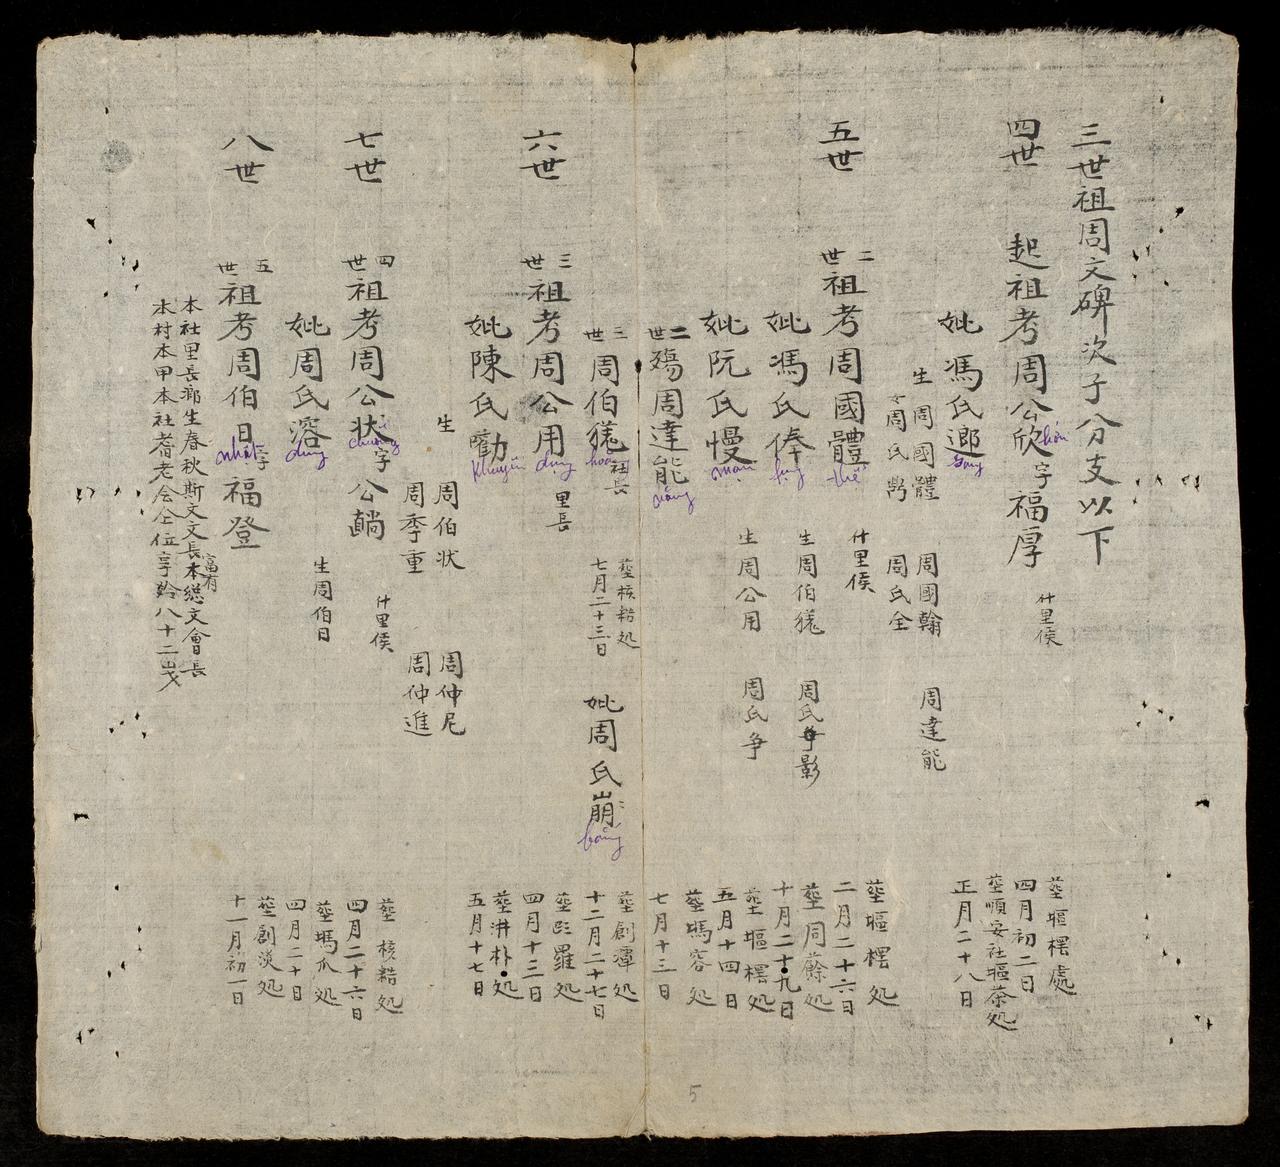 三世祖周文碑次子分支以下
四世 起祖考周公欣字福厚 什里侯
四月初二日 塟塸檡處
妣馮氏𨞐
正月二十八日 塟順安社塸茶処
生 周國體 周國翰 周達能
女周氏 周氏全
五世 二世祖考周國體 什里侯
thể
二月二十六日 塟塸檡処
妣馮氏俸 生周伯𤠲 周氏影
十月二十九日 塟同蘇処
妣阮氏慢 生周公用 周氏争
mạn
五月十四日 塟塸檡処
二世殤周達能
năng
七月十三日 塟塢容処
三世周伯𤠲社長
七月二十三日 塟核楛処
妣周氏崩
băng
十二月二十七日 塟創潭処
六世 三世祖考周公用 里長
dụng
四月十三日 塟昆羅処
妣陳氏勸
khuyến
五月十七日 塟汫朴処
生 周伯状 周仲尼
周季重 周仲進
七世 四世祖考周公状字公䫆 什里侯
四月二十六日 塟核楛処
妣周氏溶 生周伯日
dung
四月二十日 塟塢爪処
八世 五世祖考周伯日字福登
nhật
十一月初一日 塟創淡処
本社里長鄉生春秋斯文文長本總文會長
富有
本村本甲本社耆老会仝位享姈八十二歲
5